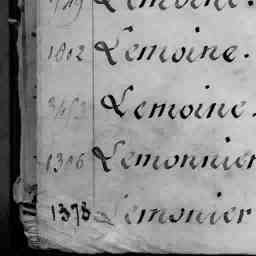 Lemoine.
1802 Lemoine.
Lemoine.
1306 Lemonnier
1373 Lemonier